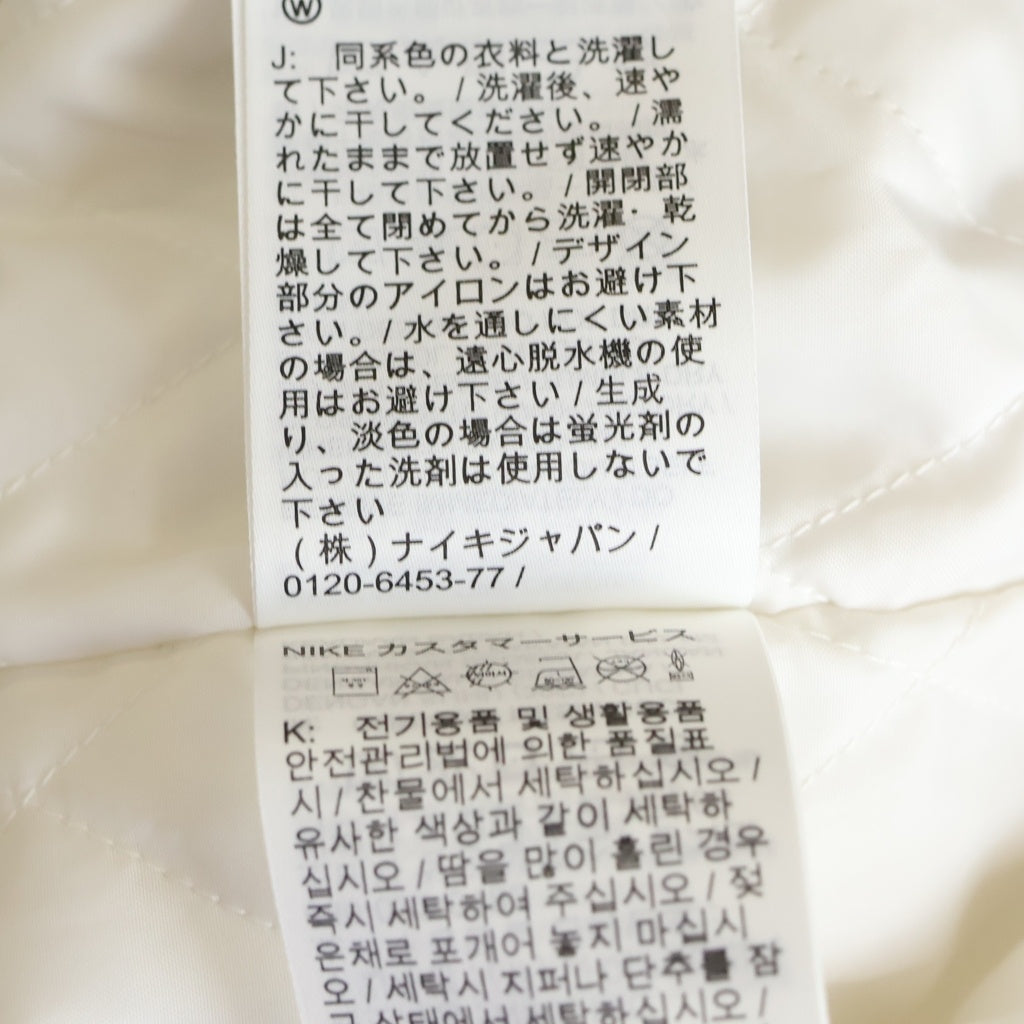 W
J: 同系色の衣料と洗濯し
て下さい。 / 洗濯後、速や
かに干してください。 / 濡
れたままで放置せず速やか
に干して下さい。 / 開閉部
は全て閉めてから洗濯・乾
燥して下さい。 / デザイン
部分のアイロンはお避け下
さい。/ 水を通しにくい素材
の場合は、遠心脱水機の使
用はお避け下さい / 生成
り、淡色の場合は蛍光剤の
入った洗剤は使用しないで
下さい
(株) ナイキジャパン /
0120-6453-77 /
NIKE カスタマーサービス
K: 전기용품 및 생활용품
안전관리법에 의한 품질표
시 / 찬물에서 세탁하십시오 /
유사한 색상과 같이 세탁하
십시오 / 땀을 많이 흘린 경우
즉시 세탁하여 주십시오 / 젖
은채로 포개어 놓지 마십시
오 / 세탁시 지퍼나 단추를 잠
그 상태에서 세탁하십시오 /